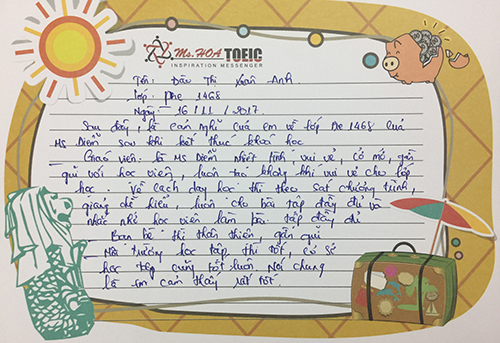 Ms.HOA TOEIC
INSPIRATION MESSENGER
Tên: Đậu Thị Xuân Anh
Lớp: Pre 1468
Ngày 16 / 11 / 2017
Sau đây, là cảm nghĩ của em về lớp Pre 1468 của
MS Diễm sau khi kết thúc khoá học
- Giáo viên: là MS Diễm nhiệt tình vui vẻ, cở mở, gần
gũi với học viên, luôn tạo không khí vui vẻ cho lớp
học. Về cách dạy học thì theo sát chương trình,
giảng dễ hiểu, luôn cho bài tập đầy đủ và
nhắc nhở học viên làm bài tập đầy đủ
- Bạn bè thì thân thiện, gần gũi
- Môi trường học tập thì tốt, cơ sở
học tập cũng tốt luôn. Nói chung
là em cảm thấy rất tốt.